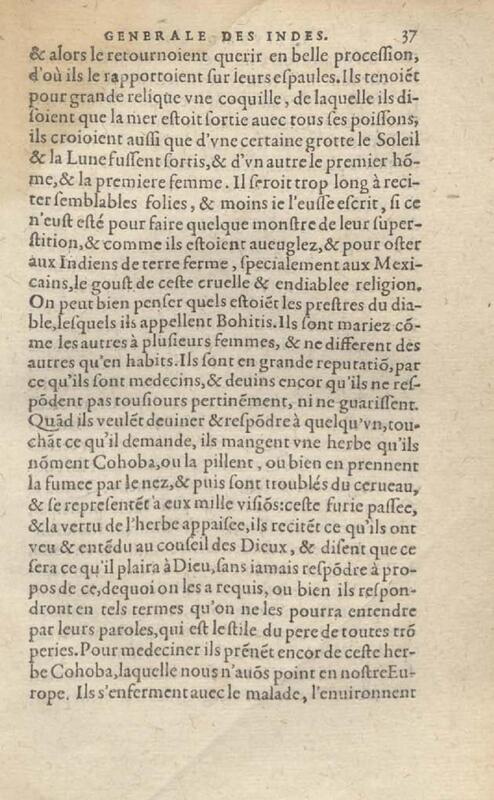 GENERALE DES INDES. 37
& alors le retournoient querir en belle procession,
d'où ils le rapportoient sur leurs espaules. Ils tenoiẽt
pour grande relique vne coquille, de laquelle ils di-
soient que la mer estoit sortie auec tous ses poissons,
ils croioient aussi que d'vne certaine grotte le Soleil
& la Lune fussent sortis, & d'vn autre le premier hõ-
me, & la premiere femme. Il seroit trop long à reci-
ter semblables folies, & moins ie l'eusse escrit, si ce
n'eust esté pour faire quelque monstre de leur super-
stition, & comme ils estoient aueuglez, & pour oster
aux Indiens de terre ferme, specialement aux Mexi-
cains, le goust de ceste cruelle & endiablee religion.
On peut bien penser quels estoiẽt les prestres du dia-
ble, lesquels ils appellent Bohitis. Ils sont mariez cõ-
me les autres à plusieurs femmes, & ne different des
autres qu'en habits. Ils sont en grande reputatiõ, par
ce qu'ils sont medecins, & deuins encor qu'ils ne res-
põdent pas tousiours pertinẽment, ni ne guarissent.
Quãd ils veulẽt deuiner & respõdre à quelqu'vn, tou-
chãt ce qu'il demande, ils mangent vne herbe qu'ils
nõment Cohoba, ou la pillent, ou bien en prennent
la fumee par le nez, & puis sont troublés du cerueau,
& se representẽt à eux mille visiõs: ceste furie passee,
& la vertu de l'herbe appaisee, ils recitẽt ce qu'ils ont
veu & entẽdu au conseil des Dieux, & disent que ce
sera ce qu'il plaira à Dieu, sans iamais respõdre à pro-
pos de ce, dequoi on les a requis, ou bien ils respon-
dront en tels termes qu'on ne les pourra entendre
par leurs paroles, qui est le stile du pere de toutes trõ
peries. Pour medeciner ils prẽnẽt encor de ceste her-
be Cohoba, laquelle nous n'auõs point en nostre Eu-
rope. Ils s'enferment auec le malade, l'enuironnent